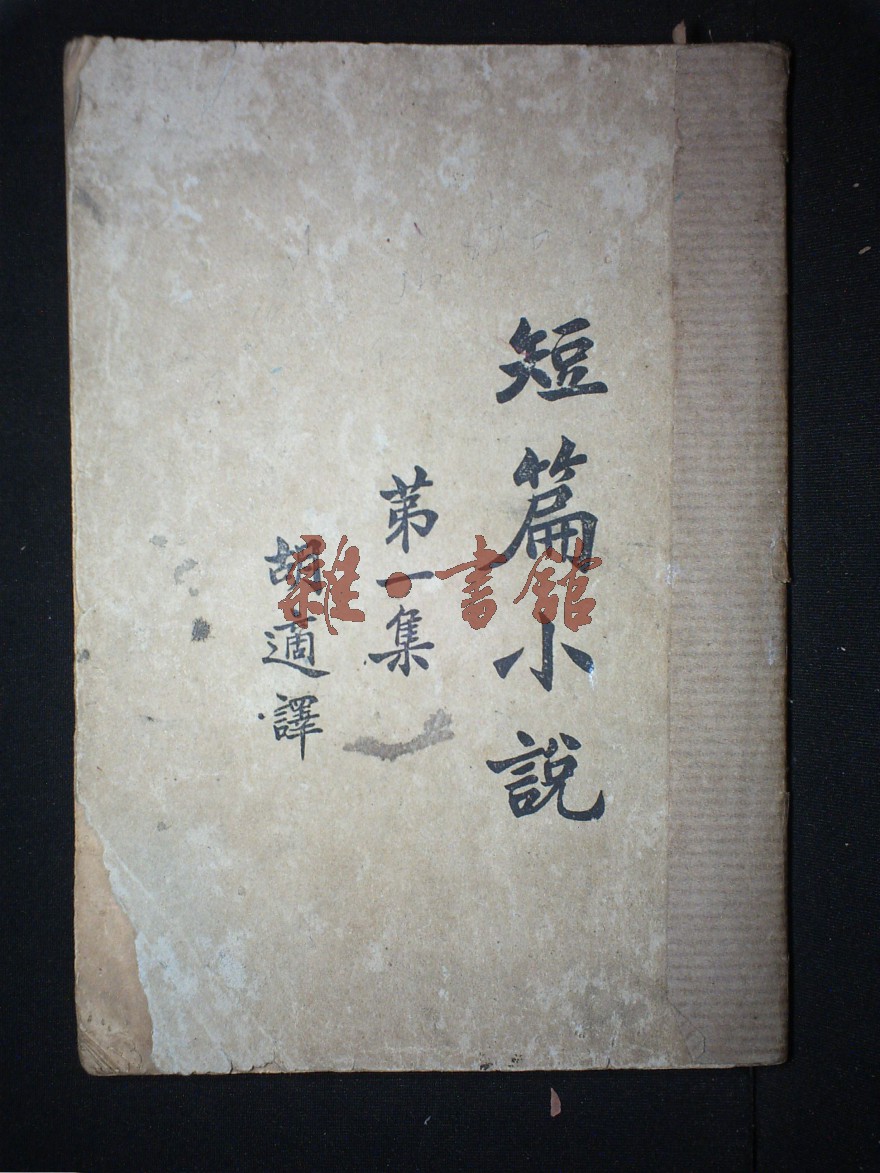 短篇小說
第一集
胡適譯
雜·書館